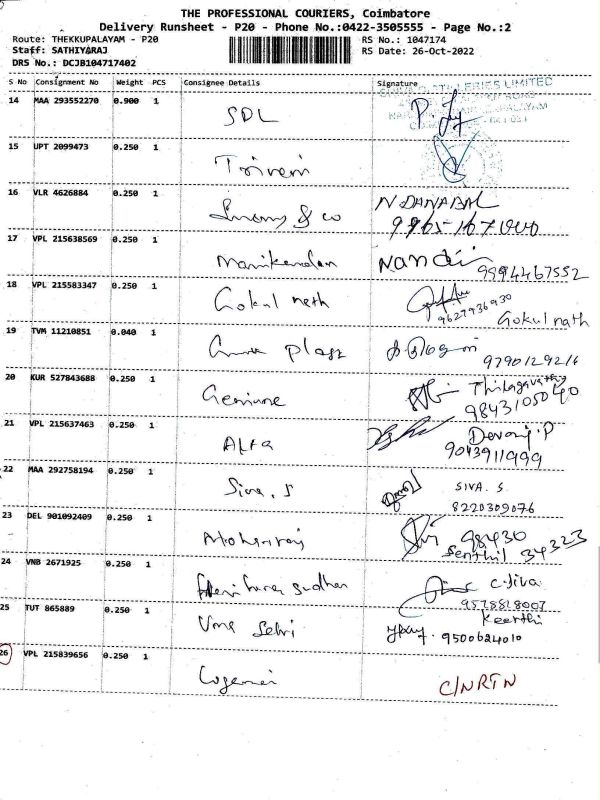 THE PROFESSIONAL COURIERS, Coimbatore
Delivery Runsheet - P20 - Phone No.:0422-3505555 - Page No.:2
Route: THEKKUPALAYAM - P20
RS No.: 1047174
Staff: SATHIYARAJ
RS Date: 26-Oct-2022
DRS No.: DCJB104717402
S No Consignment No Weight PCS Consignee Details Signature
14 MAA 293552270 0.900 1 SDL
15 UPT 2099473 0.250 1 Triveni
16 VLR 4626884 0.250 1 & co N. DANABAL
17 VPL 215638569 0.250 1 Manikandan Nandi 9994467552
18 VPL 215583347 0.250 1 Gokul nath 9627936930 Gokul nath
19 TVM 11210851 0.040 1 9790129216
20 KUR 527843688 0.250 1 Genuine Thilagavathy
9843105040
21 VPL 215637463 0.250 1 Alfa Devaraj.P
9043911999
22 MAA 292758194 0.250 1 Siva. S SIVA. S.
8220309076
23 DEL 901092409 0.250 1 98430
Senthil 34323
24 VNB 2671925 0.250 1 sudhan C.Siva
9578818007
25 TUT 865889 0.250 1 Uma Selvi Keerthi
9500624010
26 VPL 215839656 0.250 1 C/NRTN